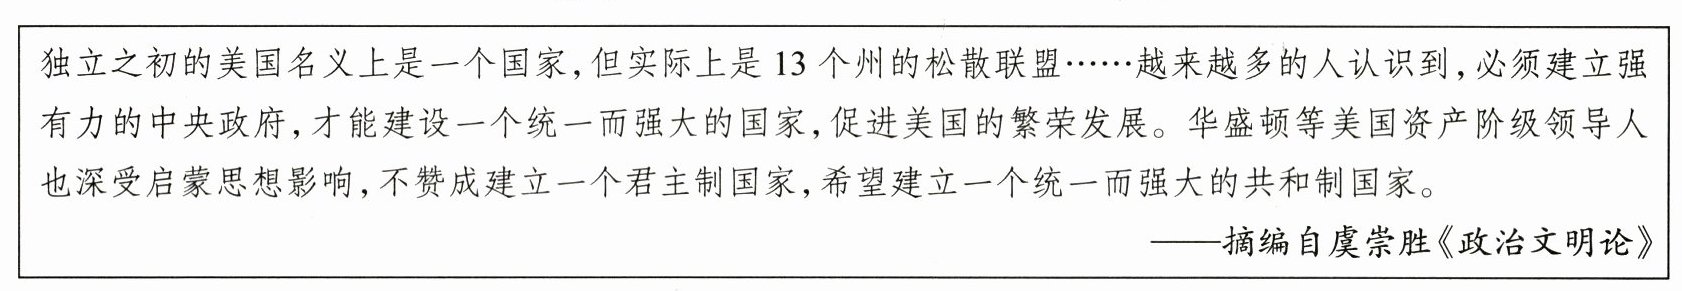 独立之初的美国名义上是一个国家,但实际上是 13 个州的松散联盟……越来越多的人认识到,必须建立强
有力的中央政府,才能建设一个统一而强大的国家,促进美国的繁荣发展。华盛顿等美国资产阶级领导人
也深受启蒙思想影响,不赞成建立一个君主制国家,希望建立一个统一而强大的共和制国家。
——摘编自虞崇胜《政治文明论》